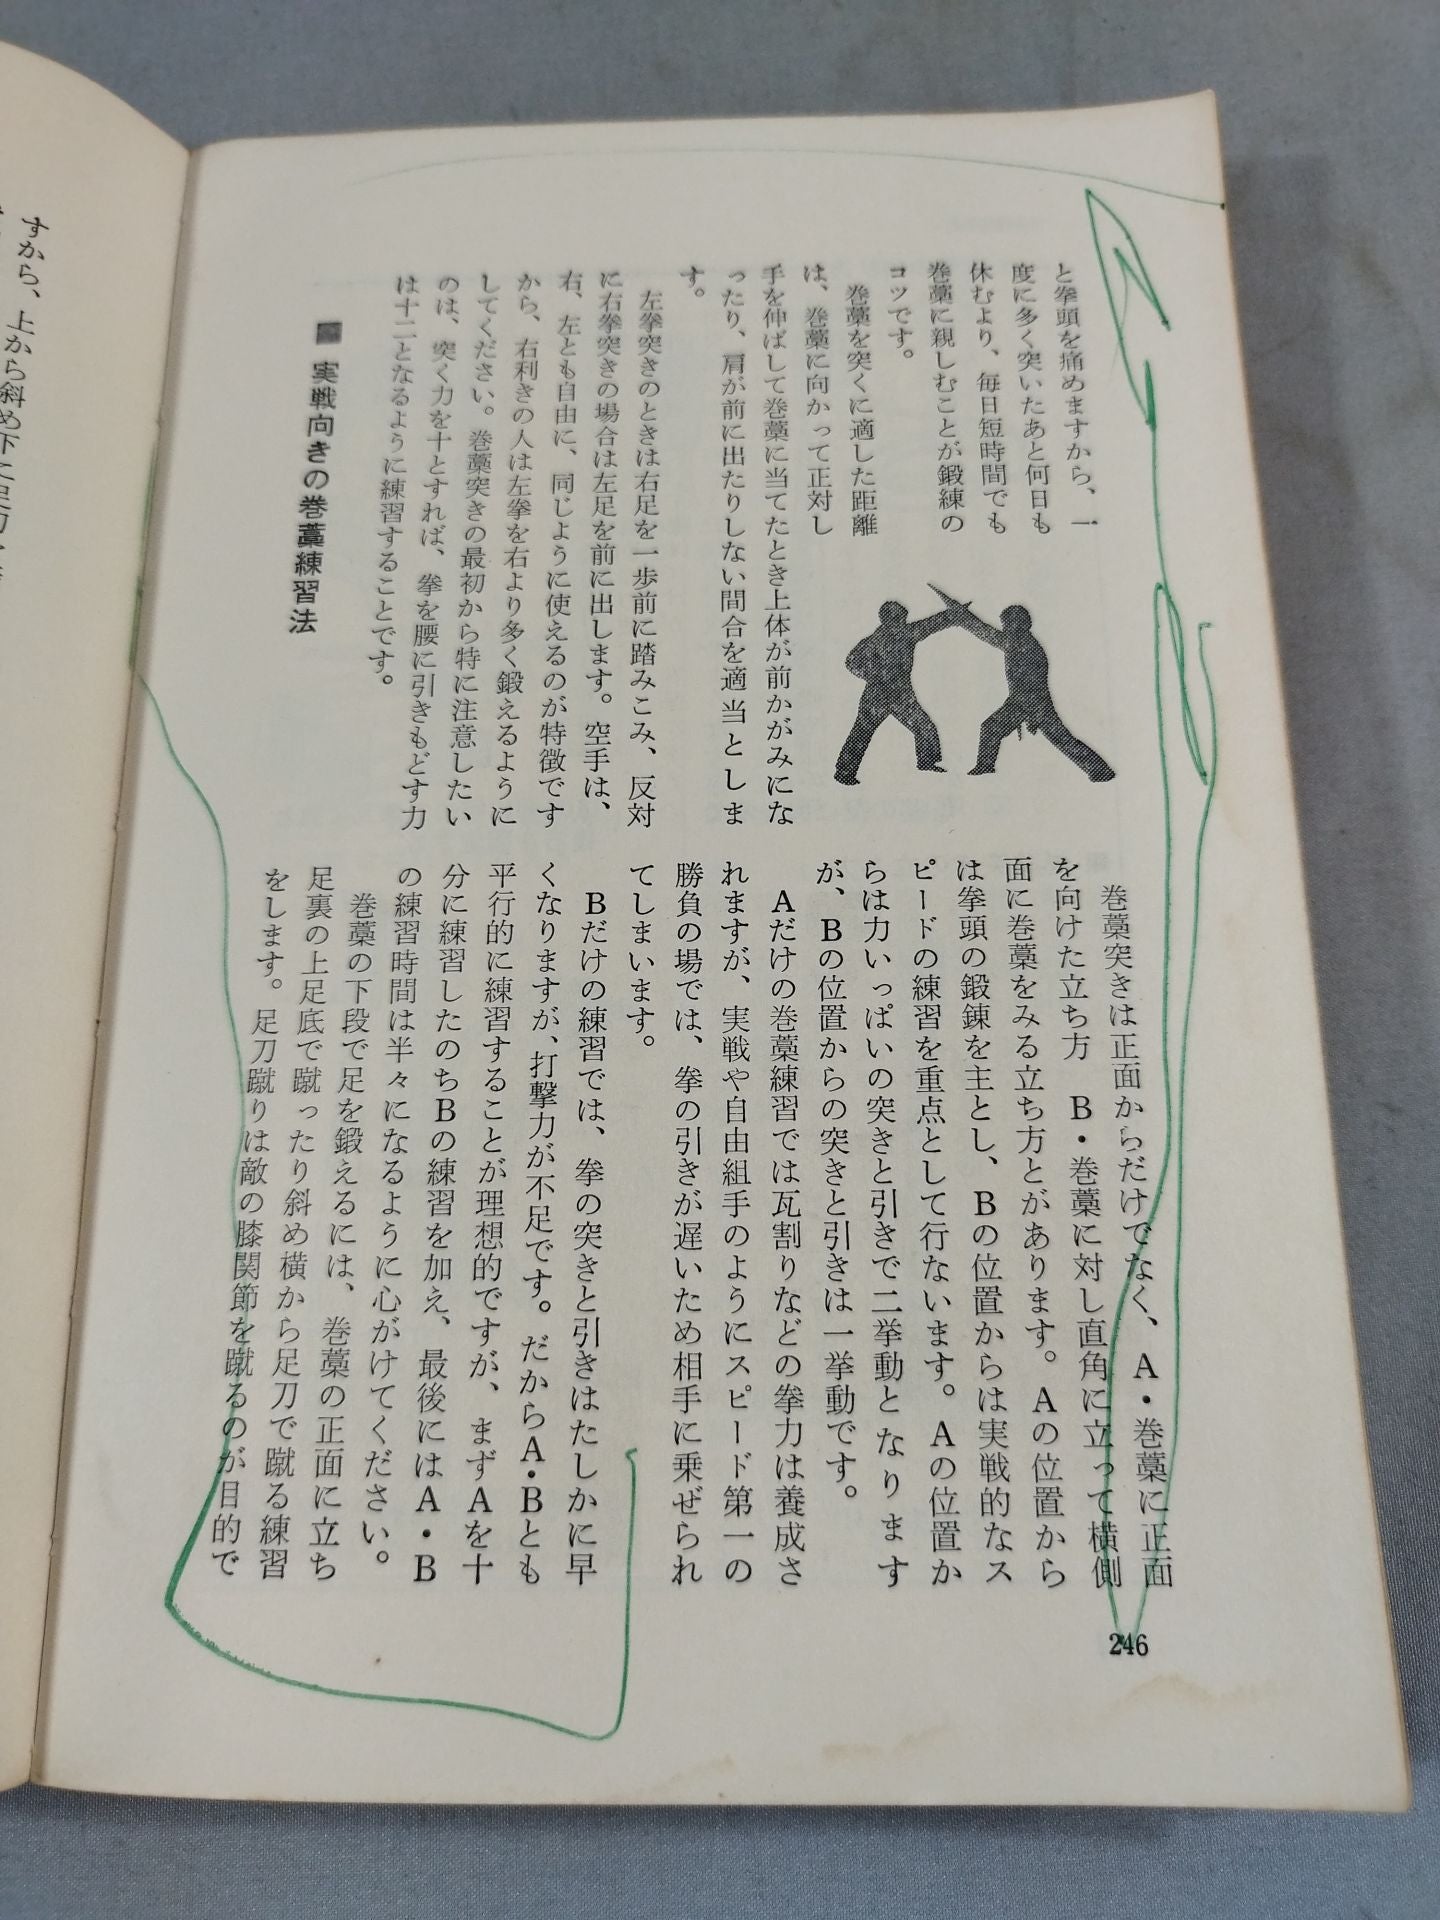 と拳頭を痛めますから、一
度に多く突いたあと何日も
休むより、毎日短時間でも
巻藁に親しむことが鍛練の
コツです。
巻藁を突くに適した距離
は、巻藁に向かって正対し
手を伸ばして巻藁に当てたとき上体が前かがみにな
ったり、肩が前に出たりしない間合を適当としま
す。
左拳突きのときは右足を一歩前に踏みこみ、反対
に右拳突きの場合は左足を前に出します。空手は、
右、左とも自由に、同じように使えるのが特徴です
から、右利きの人は左拳を右より多く鍛えるように
してください。巻藁突きの最初から特に注意したい
のは、突く力を十とすれば、拳を腰に引きもどす力
は十二となるように練習することです。
■ 実戦向きの巻藁練習法
巻藁突きは正面からだけでなく、A・巻藁に正面
を向けた立ち方 B・巻藁に対し直角に立って横側
面に巻藁をみる立ち方とがあります。Aの位置から
は拳頭の鍛錬を主とし、Bの位置からは実戦的なス
ピードの練習を重点として行ないます。Aの位置か
らは力いっぱいの突きと引きで二挙動となります
が、Bの位置からの突きと引きは一挙動です。
Aだけの巻藁練習では瓦割りなどの拳力は養成さ
れますが、実戦や自由組手のようにスピード第一の
勝負の場では、拳の引きが遅いため相手に乗ぜられ
てしまいます。
Bだけの練習では、拳の突きと引きはたしかに早
くなりますが、打撃力が不足です。だからA・Bとも
平行的に練習することが理想的ですが、まずAを十
分に練習したのちBの練習を加え、最後にはA・B
の練習時間は半々になるように心がけてください。
巻藁の下段で足を鍛えるには、巻藁の正面に立ち
足裏の上足底で蹴ったり斜め横から足刀で蹴る練習
をします。足刀蹴りは敵の膝関節を蹴るのが目的で
246
すから、上から斜め下に足刀